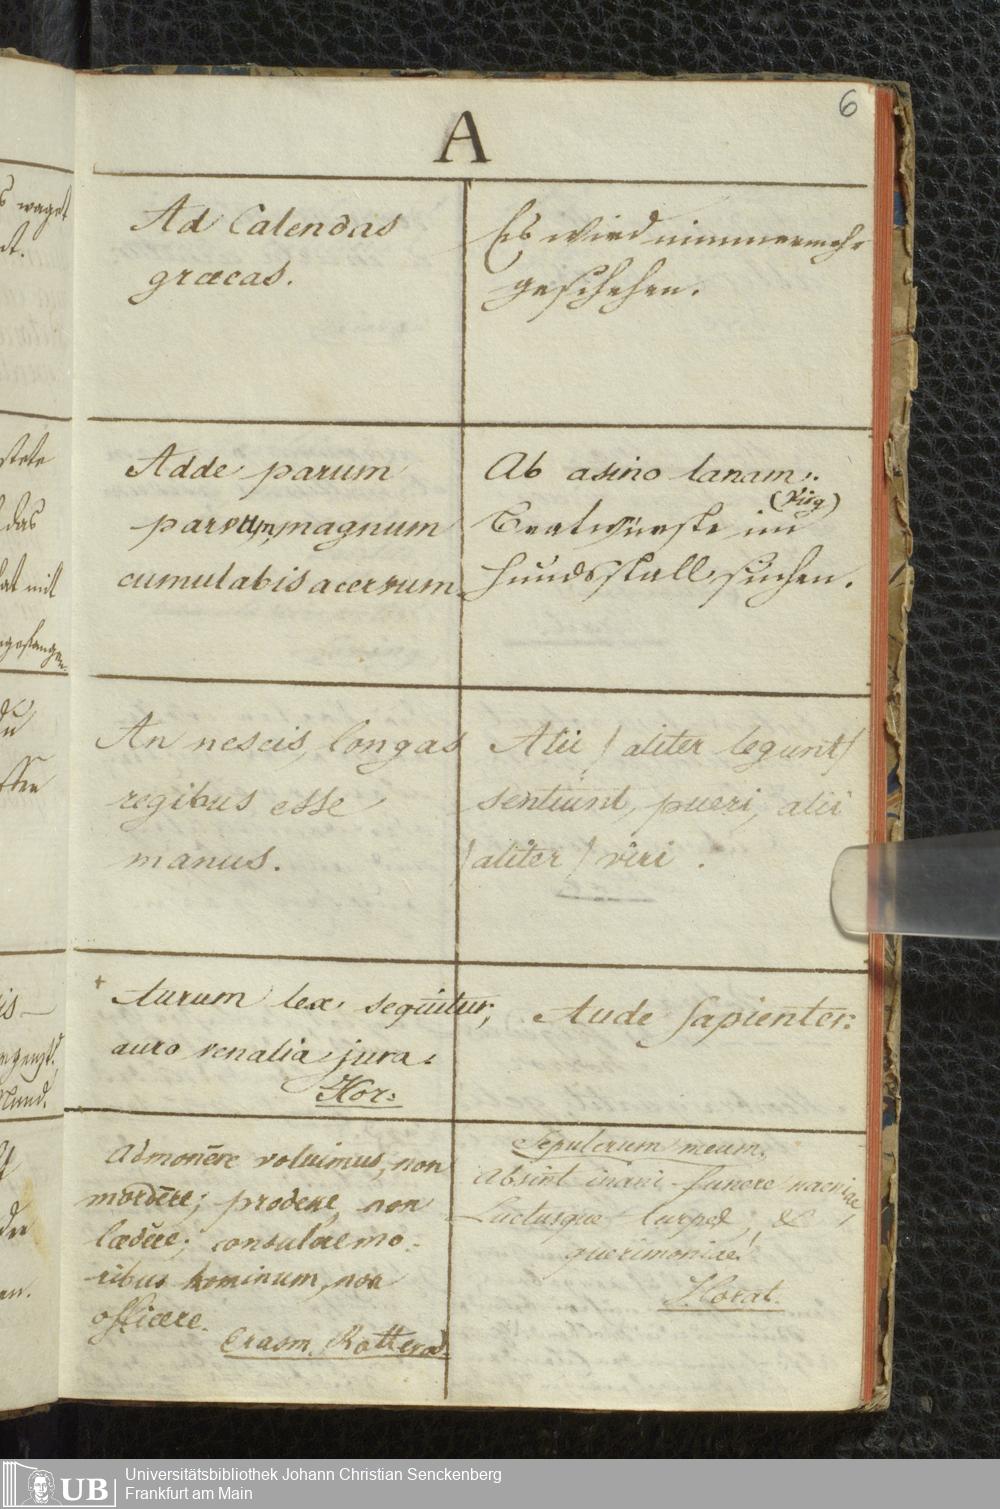 6
A
Ad Calendas
græcas.
Es wird nimmermehr
geschehen.
Adde parum
parvum, magnum
cumulabis acervum.
Ab asino lanam.
(Virg)
Bratwürste im
Hundsstall suchen.
An nescis, longas
regibus esse
manus.
Alii / aliter legunt /
sentiunt, pueri, alii
/ aliter / viri.
+ Aurum lex sequitur;
auro venalia jura.
Hor:
Aude sapienter:
Admonēre voluimus, non
mordēre; prodesse, non
lædĕre; consulere mo-
ribus hominum, non
officere.
Erasm. Rotterod.
Sepulcrum meum.
Absint inani funere næniae,
Luctusque turpes, &
querimoniae!
Horat.
s waget
stete
das
hat mit
du
is —
Mund.
der
UB
Universitätsbibliothek Johann Christian Senckenberg
Frankfurt am Main